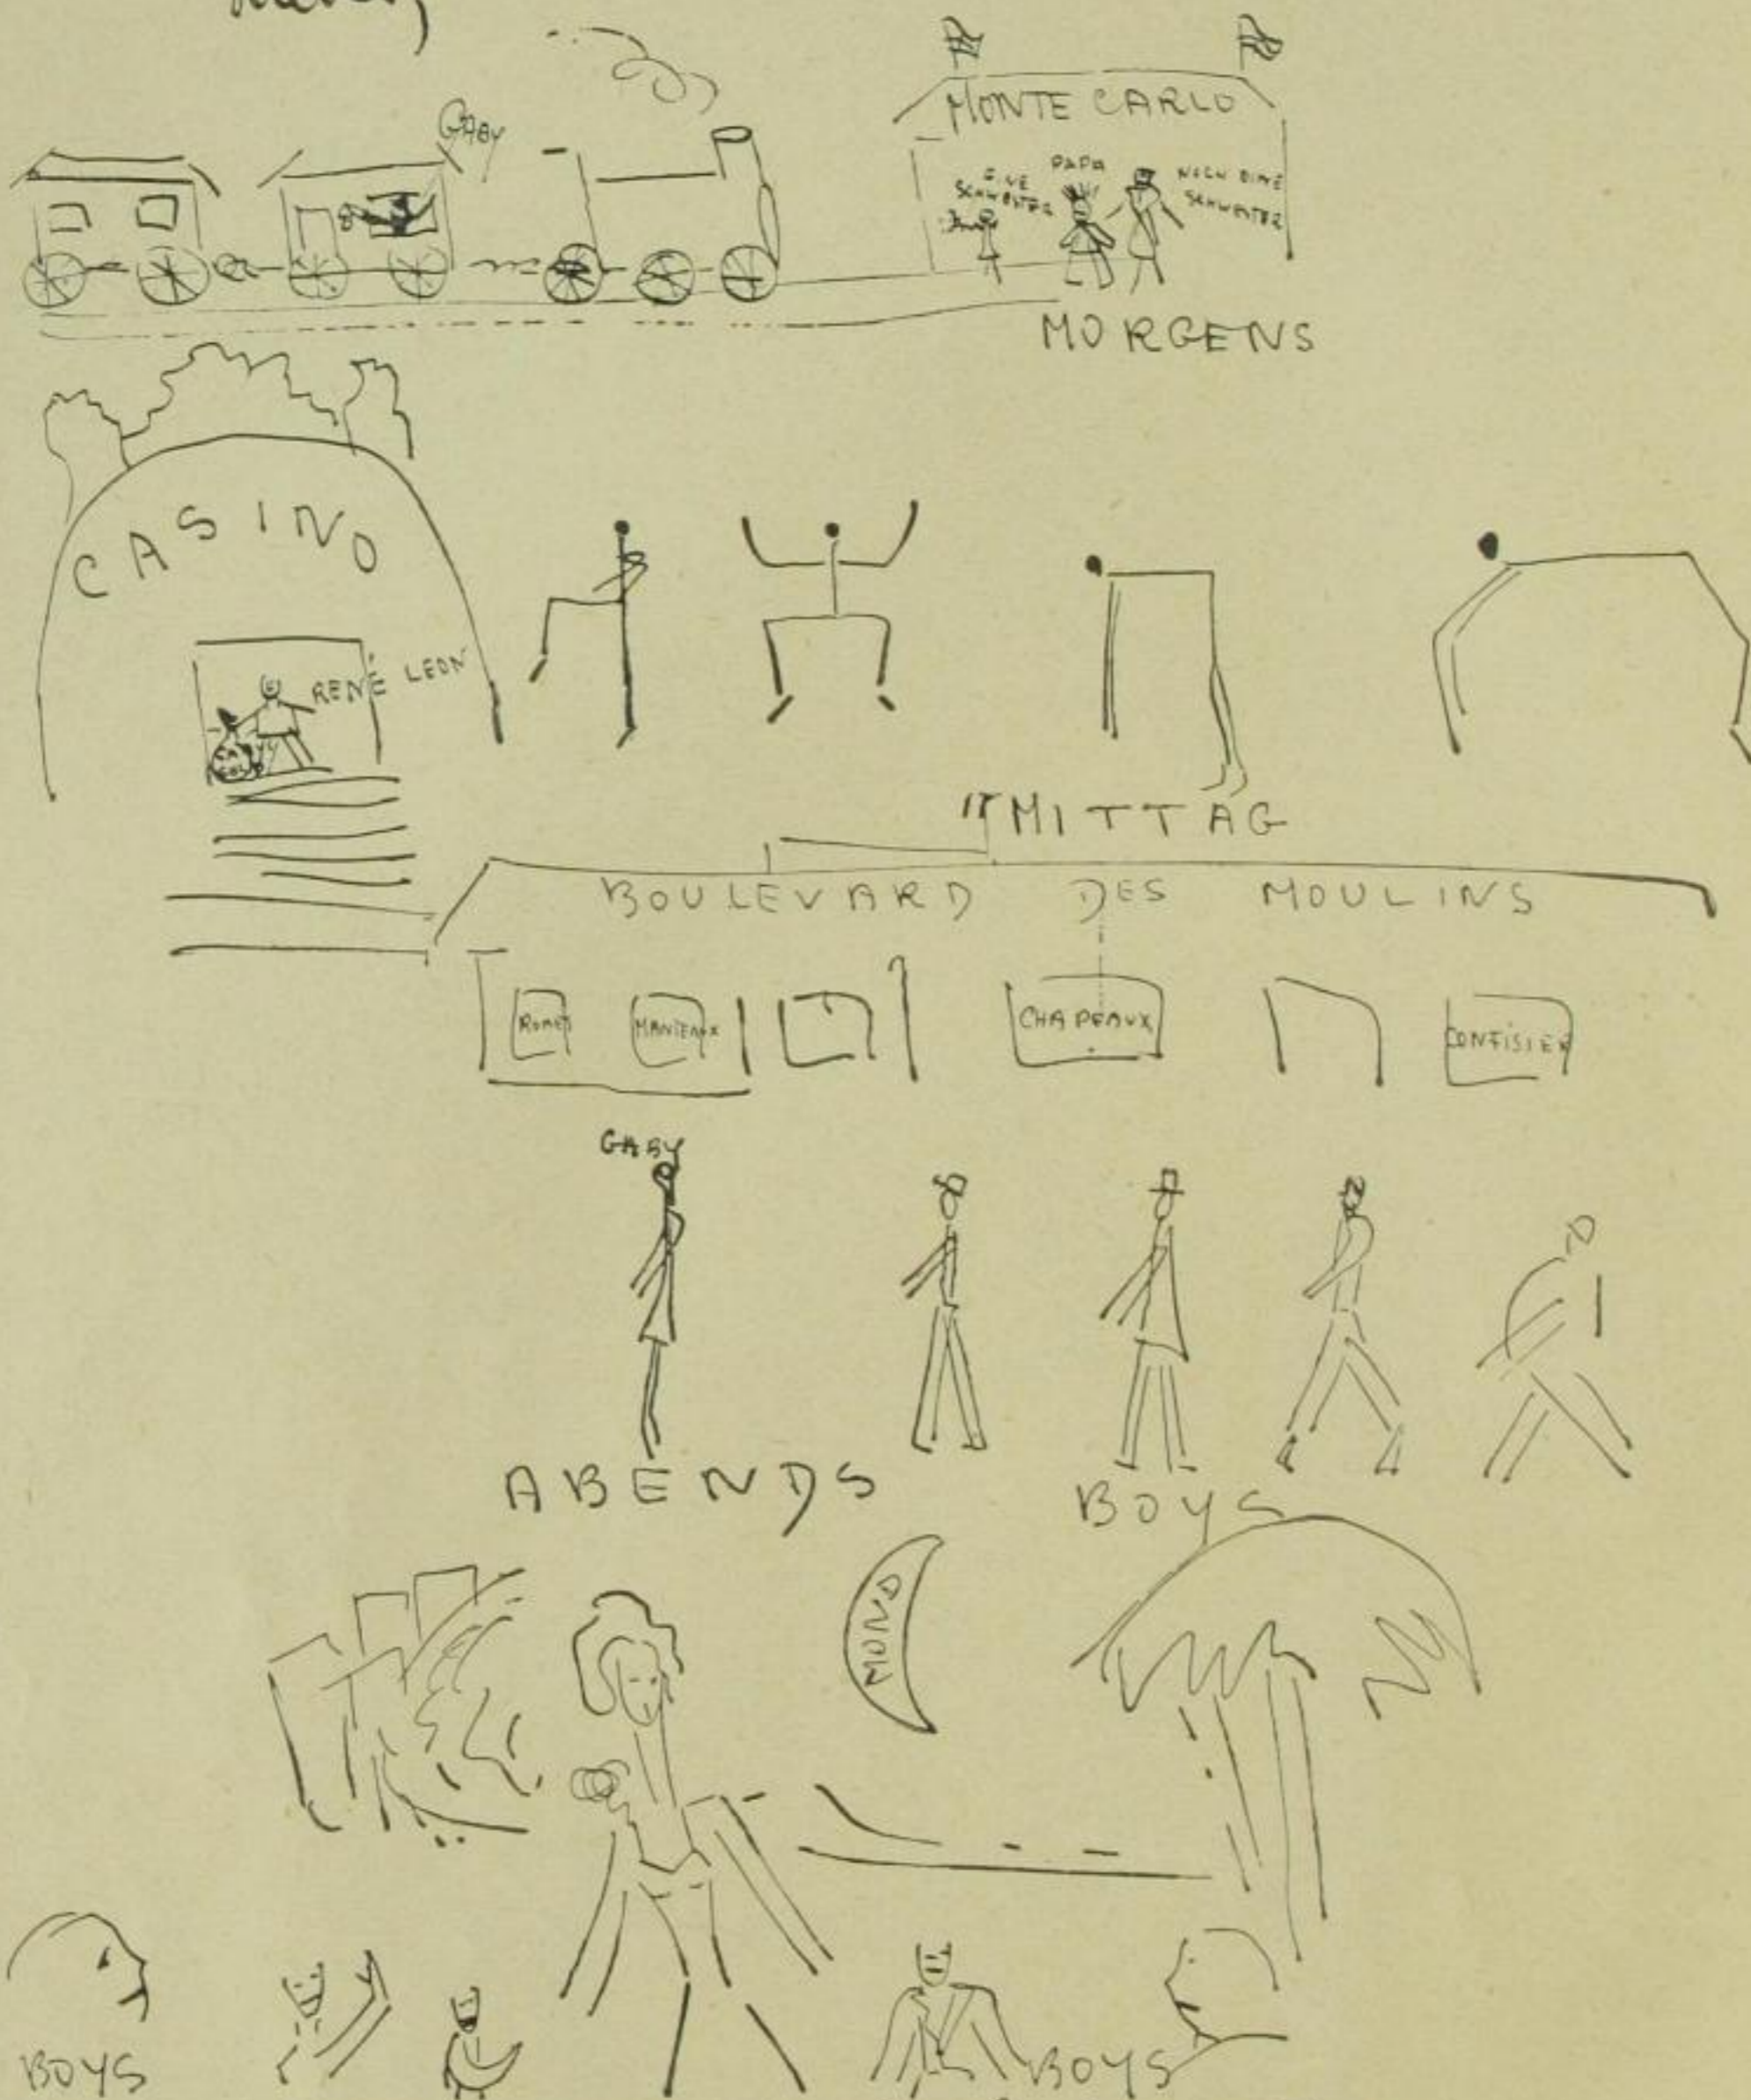 GABY
MONTE CARLO
EINE SCHWESTER
PAPA
NOCH EINE SCHWESTER
MORGENS
CASINO
RENÉ LEON
MITTAG
BOULEVARD DES MOULINS
ROBES
MANTEAUX
CHAPEAUX
CONFISIER
GABY
ABENDS
BOYS
MOND
BOYS
BOYS